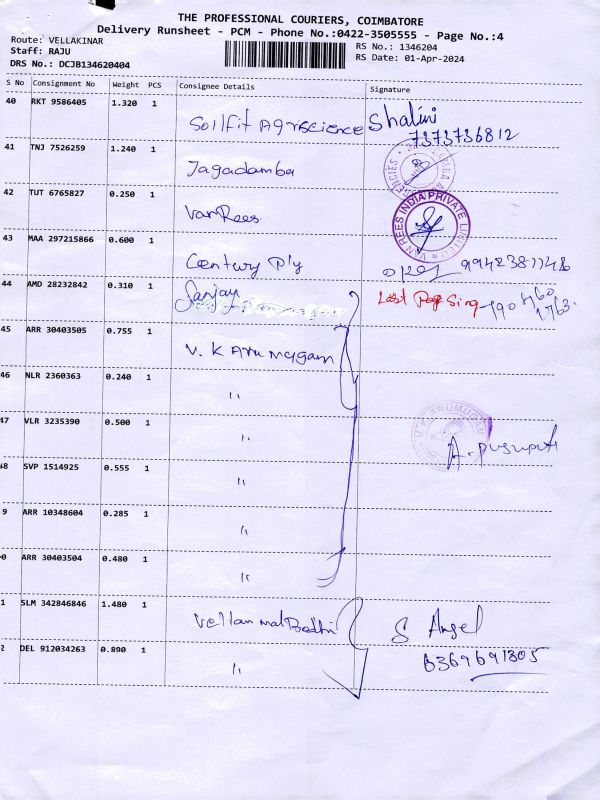 THE PROFESSIONAL COURIERS, COIMBATORE
Delivery Runsheet - PCM - Phone No.:0422-3505555 - Page No.:4
Route: VELLAKINAR
Staff: RAJU
DRS No.: DCJB134620404
RS No.: 1346204
RS Date: 01-Apr-2024
S No Consignment No Weight PCS Consignee Details Signature
40 RKT 9586405 1.320 1 Soilfit Agriscience Shalini
7373736812
41 TNJ 7526259 1.240 1 Jagadamba
42 TUT 6765827 0.250 1 VanRees
VAN REES INDIA PRIVATE LIMITED
43 MAA 297215866 0.600 1 Century Ply
44 AMD 28232842 0.310 1 Sanjay
45 ARR 30403505 0.755 1 V. K Arumugam
46 NLR 2360363 0.240 1 "
47 VLR 3235390 0.500 1 "
V.K. ARUMUGAM
48 SVP 1514925 0.555 1 "
9 ARR 10348604 0.285 1 "
0 ARR 30403504 0.480 1 "
1 SLM 342846846 1.480 1 S Angel
2 DEL 912034263 0.890 1 " 6369691305